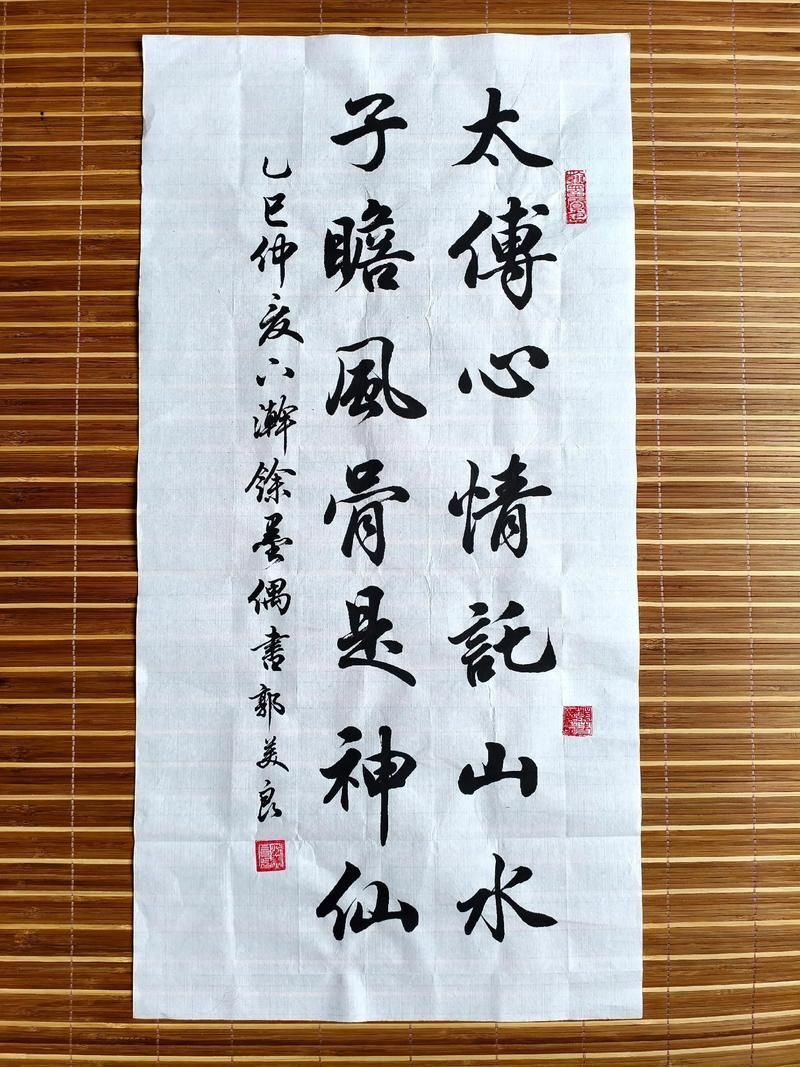 太傅心情託山水
子瞻風骨是神仙
乙巳仲夏下澣餘墨偶書郭美良